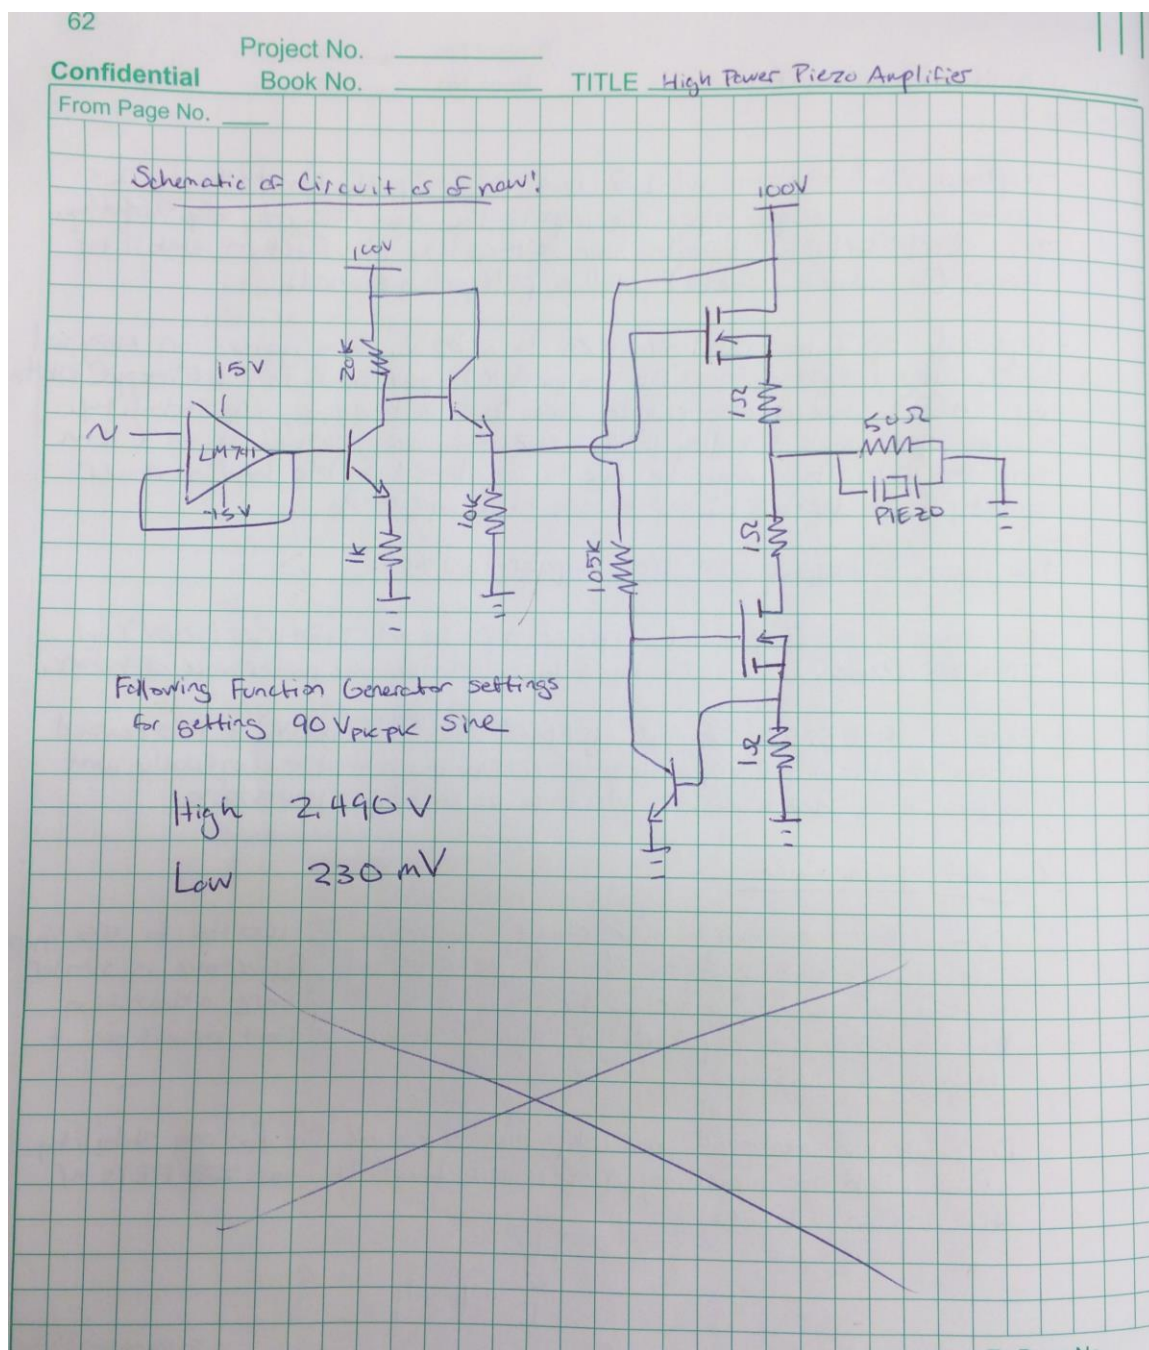 62
Project No.
Confidential
Book No.
TITLE High Power Piezo Amplifier
From Page No.
Schematic of Circuit as of now!
100V
100V
20K
15V
1Ω
50Ω
~
LM741
-15V
PIEZO
10K
1Ω
1K
105K
Following Function Generator settings
for getting 90 Vpkpk Sine
1Ω
High 2.490 V
Low 230 mV